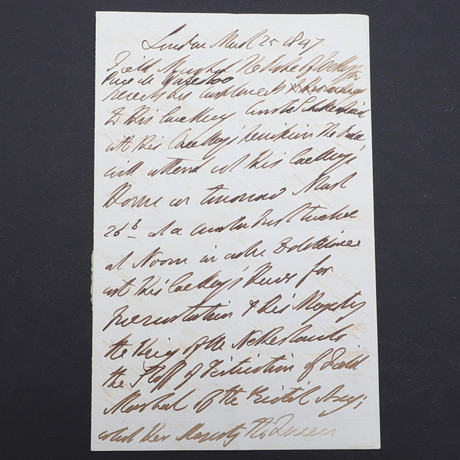 London March 25 1847
Field Marshal The Duke of Wellington
Prince de Waterloo
presents his compliments
to His Excellency Count
with His Excellency's permission The Duke
will attend at His Excellency's
House on tomorrow March
26th at a quarter past twelve
at Noon in order to deliver
His Excellency's for
presentation to His Majesty
the King of the Netherlands
the Staff of Distinction of Field
Marshal of the British Army;
which Her Majesty The Queen